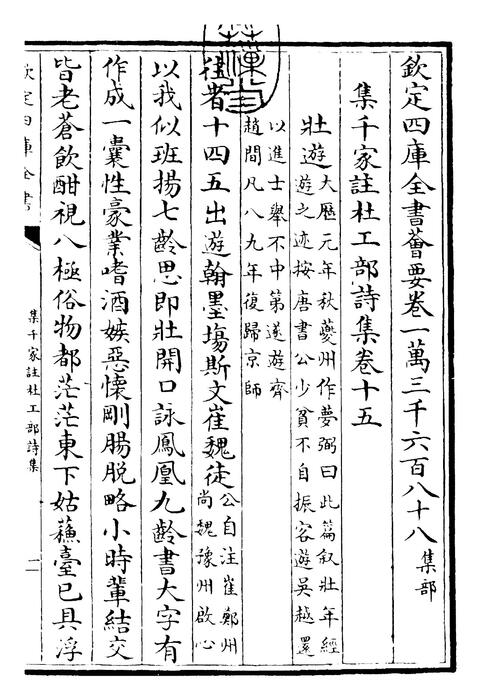 欽定四庫全書薈要卷一萬三千六百八十八集部
集千家註杜工部詩集卷十五
壯遊大歷元年秋夔州作夢弼曰此篇叙壯年經
遊之迹按唐書公少貧不自振客遊吳越還
以進士舉不中第遂遊齊
趙間凡八九年復歸京師
往者十四五出遊翰墨塲斯文崔魏徒公自注崔鄭州
尚魏豫州啟心
以我似班揚七齡思即壯開口詠鳳凰九齡書大字有
作成一囊性豪業嗜酒嫉惡懷剛腸脱略小時輩結交
皆老蒼飲酣視八極俗物都茫茫東下姑蘓臺已具浮
欽定四庫全書
集千家註杜工部詩集
一